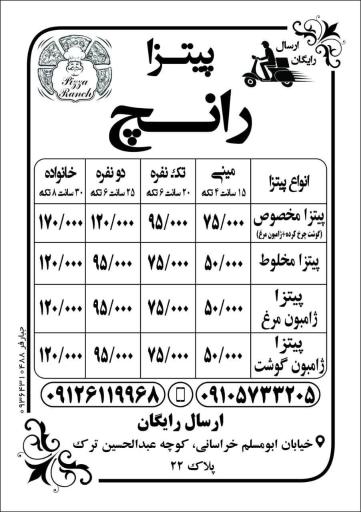 پیتزا
رانچ
ارسال
رایگان
Pizza
Ranch
انواع پیتزا | مینی ۱۵ سانت ۴ تکه | تک نفره ۲۰ سانت ۶ تکه | دو نفره ۲۵ سانت ۶ تکه | خانواده ۳۰ سانت ۸ تکه
پیتزا مخصوص (گوشت چرخ کرده+ژامبون مرغ) | ۷۵/۰۰۰ | ۹۵/۰۰۰ | ۱۲۰/۰۰۰ | ۱۷۰/۰۰۰
پیتزا مخلوط | ۵۰/۰۰۰ | ۷۵/۰۰۰ | ۹۵/۰۰۰ | ۱۲۰/۰۰۰
پیتزا ژامبون مرغ | ۵۰/۰۰۰ | ۷۵/۰۰۰ | ۹۵/۰۰۰ | ۱۲۰/۰۰۰
پیتزا ژامبون گوشت | ۵۰/۰۰۰ | ۷۵/۰۰۰ | ۹۵/۰۰۰ | ۱۲۰/۰۰۰
۰۹۱۲۶۱۱۹۹۶۸ ۰۹۱۰۵۷۳۳۲۰۵
ارسال رایگان
خیابان ابومسلم خراسانی، کوچه عبدالحسین ترک
پلاک ۲۲